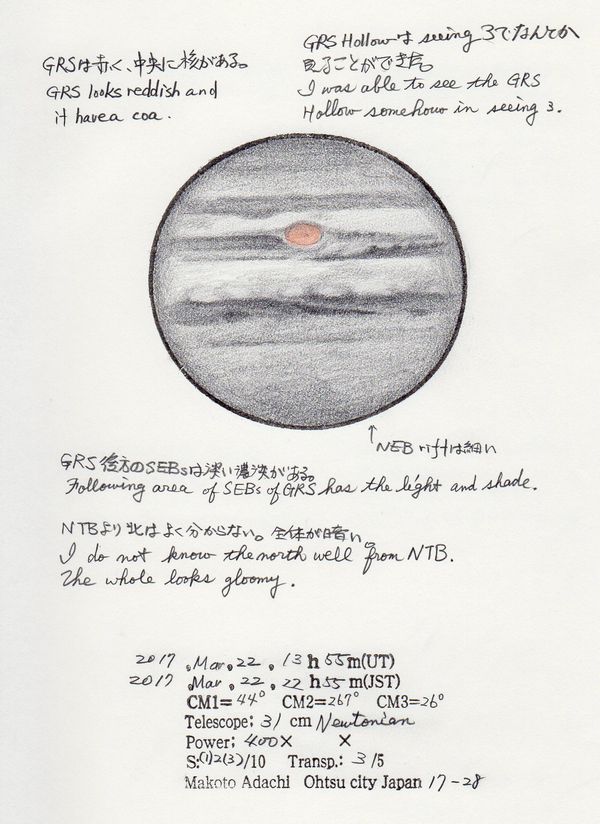 GRSは赤く、中央に核がある。
GRS looks reddish and
it have a coa.
GRS Hollowは seeing 3でなんとか
見ることができた。
I was able to see the GRS
Hollow somehow in seeing 3.
↑NEB riftは細い
GRS後方のSEBsは淡い濃淡がある。
Following area of SEBs of GRS has the light and shade.
NTBより北はよく分からない。全体が暗い。
I do not know the north well from NTB.
The whole looks gloomy.
2017 .Mar. 22 , 13 h 55 m(UT)
2017 Mar . 22 , 22 h 55 m(JST)
CM1= 44° CM2= 267° CM3= 26°
Telescope: 31 cm Newtonian
Power: 400× ×
S:(1)2(3)/10 Transp.: 3 /5
Makoto Adachi Ohtsu city Japan 17-28